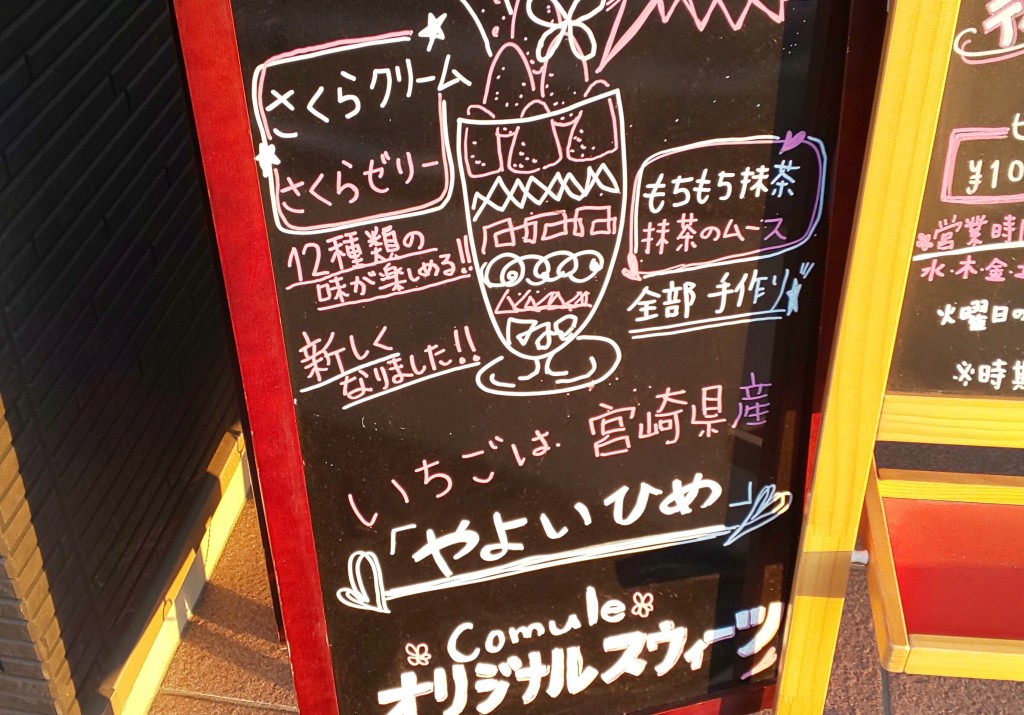 さくらクリーム
さくらゼリー
12種類の
味が楽しめる!!
新しく
なりました!!
もちもち抹茶
抹茶のムース
全部 手作り
いちごは 宮崎県産
「やよいひめ」
Comule
オリジナルスウィーツ
¥10
営業時
水・木・金
火曜日の
※時期